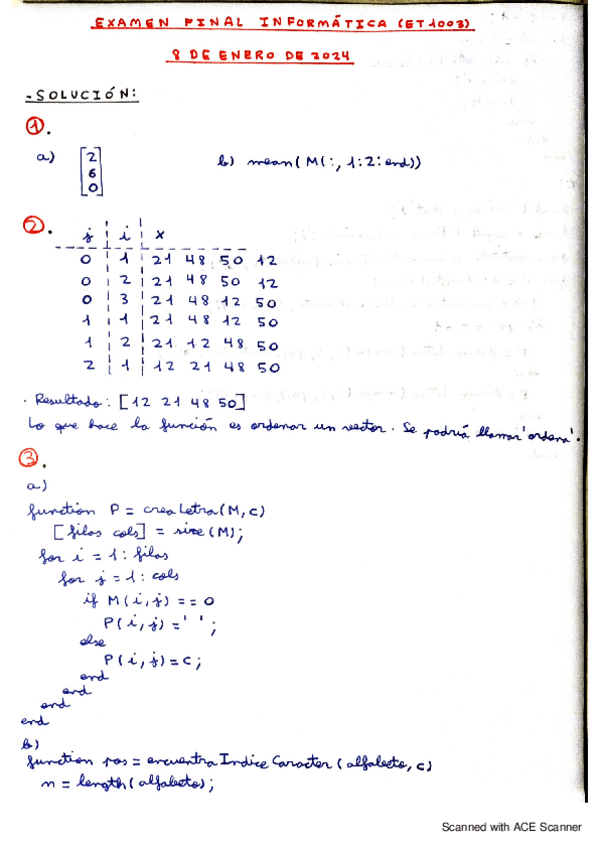 EXAMEN FINAL INFORMÁTICA (ET1003)
8 DE ENERO DE 2024
- SOLUCIÓN:
①.
a) [2 6 0] b) mean(M(:, 1:2:end))
②.
j i x
0 1 21 48 50 12
0 2 21 48 50 12
0 3 21 48 12 50
1 1 21 48 12 50
1 2 21 12 48 50
2 1 12 21 48 50
· Resultado: [12 21 48 50]
Lo que hace la función es ordenar un vector. Se podría llamar 'ordena'.
③.
a)
function P = creaLetra(M,c)
[filas cols] = size(M);
for i = 1: filas
for j = 1: cols
if M(i,j) == 0
P(i,j) = ' ';
else
P(i,j) = c;
end
end
end
end
b)
function pos = encuentraIndiceCaracter (alfabeto, c)
n = length(alfabeto);
Scanned with ACE Scanner